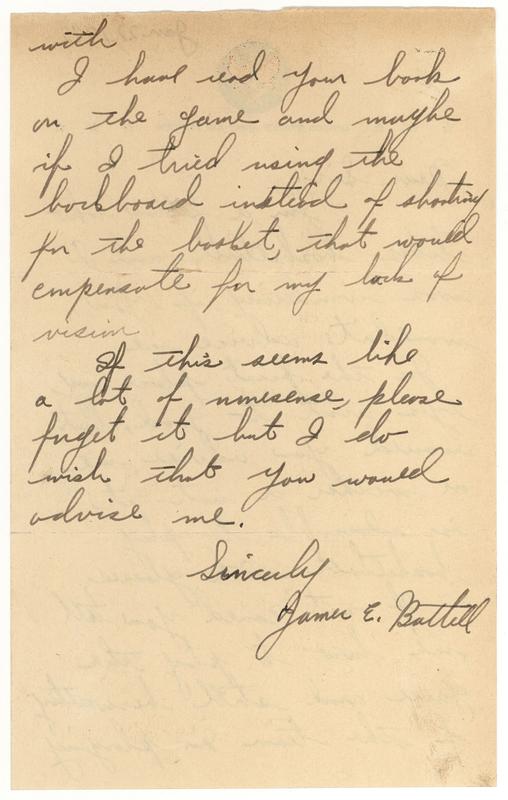 with
I have read your book
on the game and maybe
if I tried using the
backboard instead of shooting
for the basket, that would
compensate for my lack of
vision
If this seems like
a lot of nonesense, please
forget it but I do
wish that you would
advise me.
Sincerely
James E. Battell